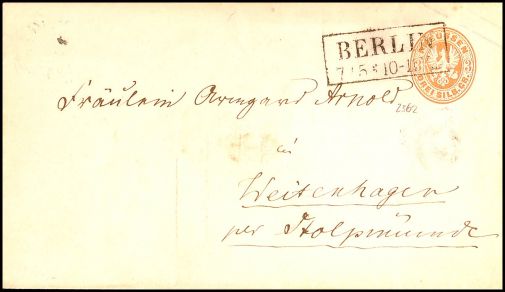 BERLIN
7 5 * 10-1
PREUSSEN
DREI SILB. GR.
Fräulein Armgard Arnold
2362
in
Weitenhagen
per Stolpmünde